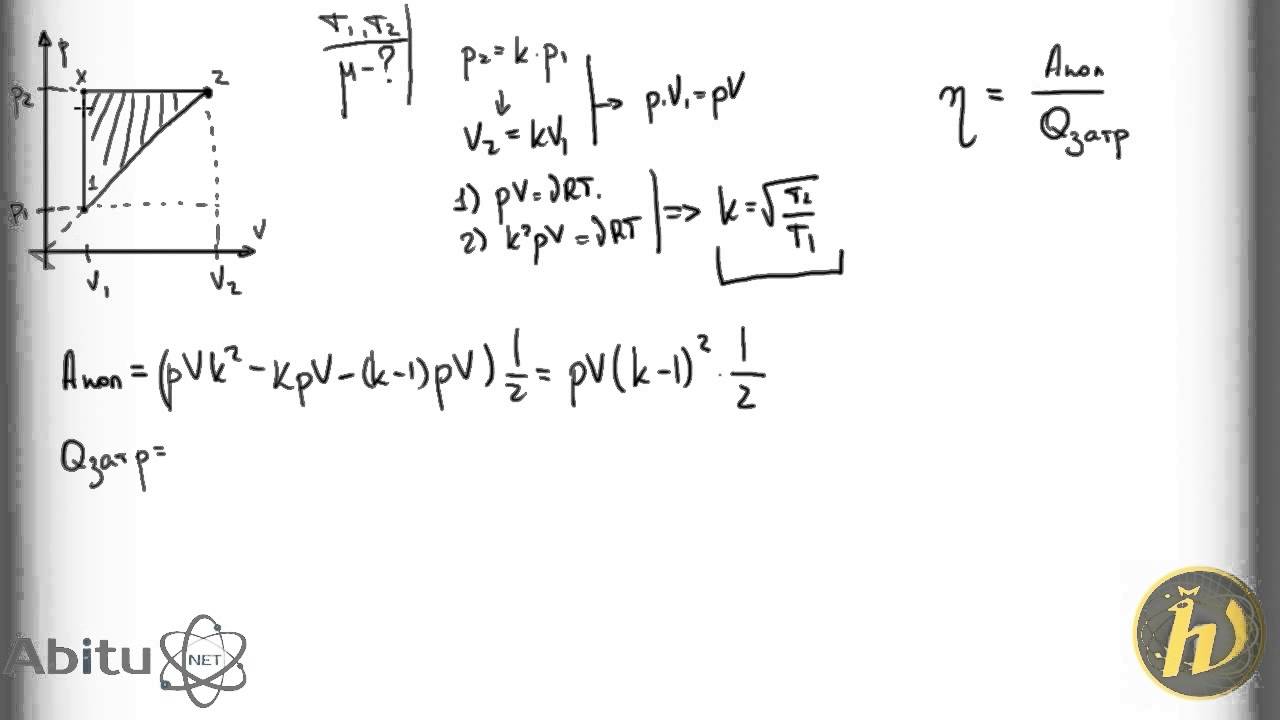 p
x
2
p₂
1
p₁
V
V₁
V₂
T₁, T₂
μ - ?
p₂ = k · p₁
↓
V₂ = kV₁
→ p·V₁ = pV
1) pV = νRT.
2) k²pV = νRT
=> k = √(T₂/T₁)
η = Aпол / Qзатр
Aпол = (pVk² - kpV - (k-1)pV) 1/2 = pV(k-1)² · 1/2
Qзатр =
Abitu
NET